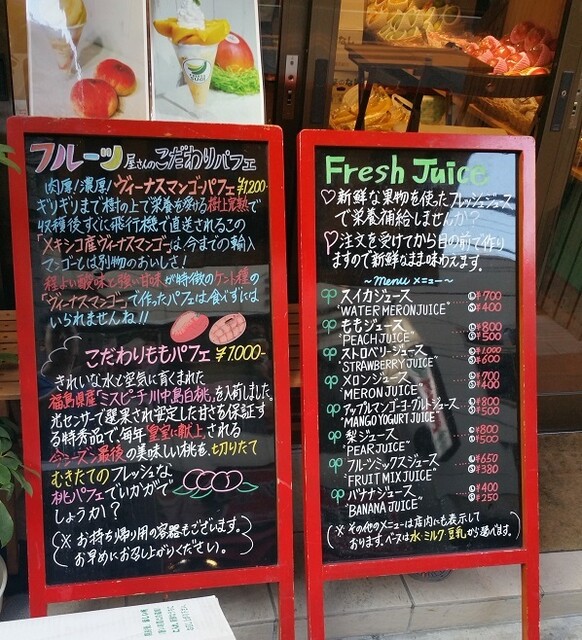 フルーツ屋さんのこだわりパフェ
肉厚!濃厚!ヴィーナスマンゴーパフェ¥1200-
ギリギリまで樹の上で栄養を受ける樹上完熟で
収穫後すぐに飛行機で直送されるこの
「メキシコ産ヴィーナスマンゴー」は今までの輸入
マンゴーとは別物のおいしさ!
程よい酸味と強い甘味が特徴のケント種の
「ヴィーナスマンゴー」で作ったパフェは食べずには
いられませんね!!
こだわりももパフェ ¥1.000-
きれいな水と空気に育くまれた
福島県産「ミスピーチ川中島白桃」を入荷しました。
光センサーで選果され安定した甘さを保証す
る特秀品で、毎年皇室に献上される
今シーズン最後の美味しい桃を、切りたて
むきたてのフレッシュな
桃パフェでいかがで
しょうか?
(※お持ち帰り用の容器もございます。
お早めにお召し上がりください。)
Fresh Juice
♡新鮮な果物を使ったフレッシュジュース
で栄養補給しませんか?
♡注文を受けてから目の前で作り
ますので新鮮なまま味わえます。
～Menu メニュー～
スイカジュース Ⓛ¥700
"WATER MERON JUICE" Ⓢ¥400
ももジュース Ⓛ¥800
"PEACH JUICE" Ⓢ¥500
ストロベリージュース Ⓛ¥1,000
"STRAWBERRY JUICE" Ⓢ¥600
メロンジュース Ⓛ¥700
"MERON JUICE" Ⓢ¥400
アップルマンゴーヨーグルトジュース Ⓛ¥800
"MANGO YOGURT JUICE" Ⓢ¥500
梨ジュース Ⓛ¥800
"PEAR JUICE" Ⓢ¥500
フルーツミックスジュース Ⓛ¥650
"FRUIT MIX JUICE" Ⓢ¥380
バナナジュース Ⓛ¥400
"BANANA JUICE" Ⓢ¥250
(※その他のメニューは店内にも表示して
おります。ベースは水・ミルク・豆乳から選べます。)